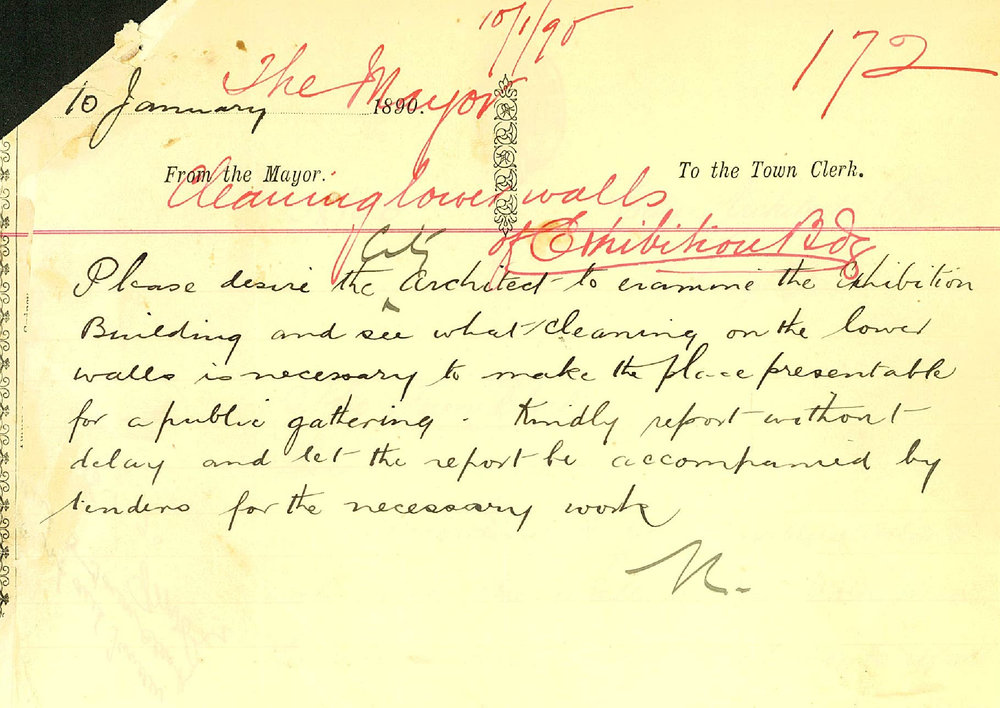 10/1/90
172
The Mayor
10 January 1890.
From the Mayor. To the Town Clerk.
Cleaning lower walls
of Exhibition Bdg
City
Please desire the Architect to examine the Exhibition
Building and see what cleaning on the lower
walls is necessary to make the place presentable
for a public gathering. Kindly report without
delay and let the report be accompanied by
tenders for the necessary work
M.